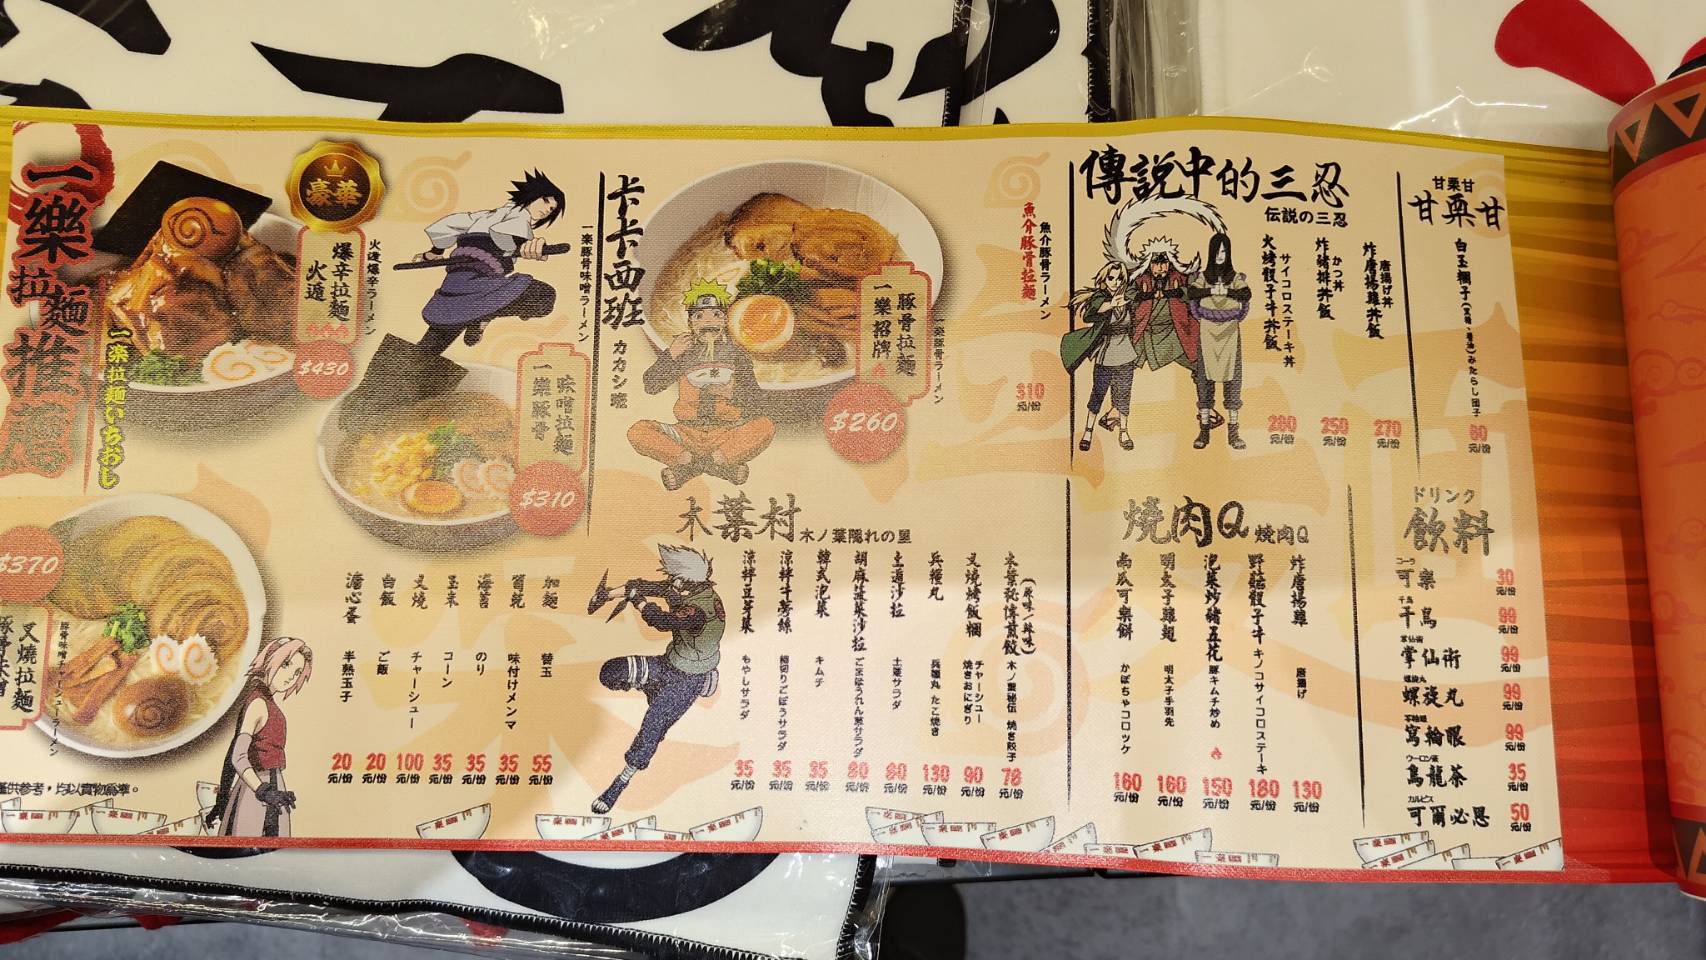 一樂拉麵推薦
一楽拉麺いちおし
豪華
火遁
爆辛拉麵
火遁爆辛ラーメン
$430
一樂豚骨
味噌拉麵
一楽豚骨味噌ラーメン
$310
$370
叉燒拉麵
豚骨味噌チャーシューラーメン
僅供參考,均以實物為準。
卡卡西班
カカシ班
一樂招牌
豚骨拉麵
一楽豚骨ラーメン
$260
魚介豚骨拉麵
魚介豚骨ラーメン
310
元/份
溏心蛋 半熟玉子 20 元/份
白飯 ご飯 20 元/份
叉燒 チャーシュー 100 元/份
玉米 コーン 35 元/份
海苔 のり 35 元/份
筍乾 味付けメンマ 35 元/份
加麵 替玉 55 元/份
木葉村
木ノ葉隠れの里
涼拌豆芽菜 もやしサラダ 35 元/份
涼拌牛蒡絲 細切りごぼうサラダ 35 元/份
韓式泡菜 キムチ 35 元/份
胡麻菠菜沙拉 ごまほうれん草サラダ 80 元/份
土遁沙拉 土遁サラダ 80 元/份
兵糧丸 兵糧丸 たこ焼き 130 元/份
叉燒烤飯糰 チャーシュー焼きおにぎり 90 元/份
木葉秘傳煎餃(原味/辣味) 木ノ葉秘伝 焼き餃子 78 元/份
傳說中的三忍
伝説の三忍
火烤骰子牛丼飯 サイコロステーキ丼 280 元/份
炸豬排丼飯 かつ丼 250 元/份
炸唐揚雞丼飯 唐揚げ丼 270 元/份
甘栗甘
甘栗甘
みたらし団子
60
元/份
燒肉Q
焼肉Q
南瓜可樂餅 かぼちゃコロッケ 160 元/份
明太子雞翅 明太子手羽先 160 元/份
泡菜炒豬五花 豚キムチ炒め 150 元/份
野菇骰子牛 キノコサイコロステーキ 180 元/份
炸唐揚雞 唐揚げ 130 元/份
ドリンク
飲料
コーラ
可樂 30 元/份
千鳥
千鳥 99 元/份
掌仙術
掌仙術 99 元/份
螺旋丸
螺旋丸 99 元/份
写輪眼
寫輪眼 99 元/份
ウーロン茶
烏龍茶 35 元/份
カルピス
可爾必思 50 元/份